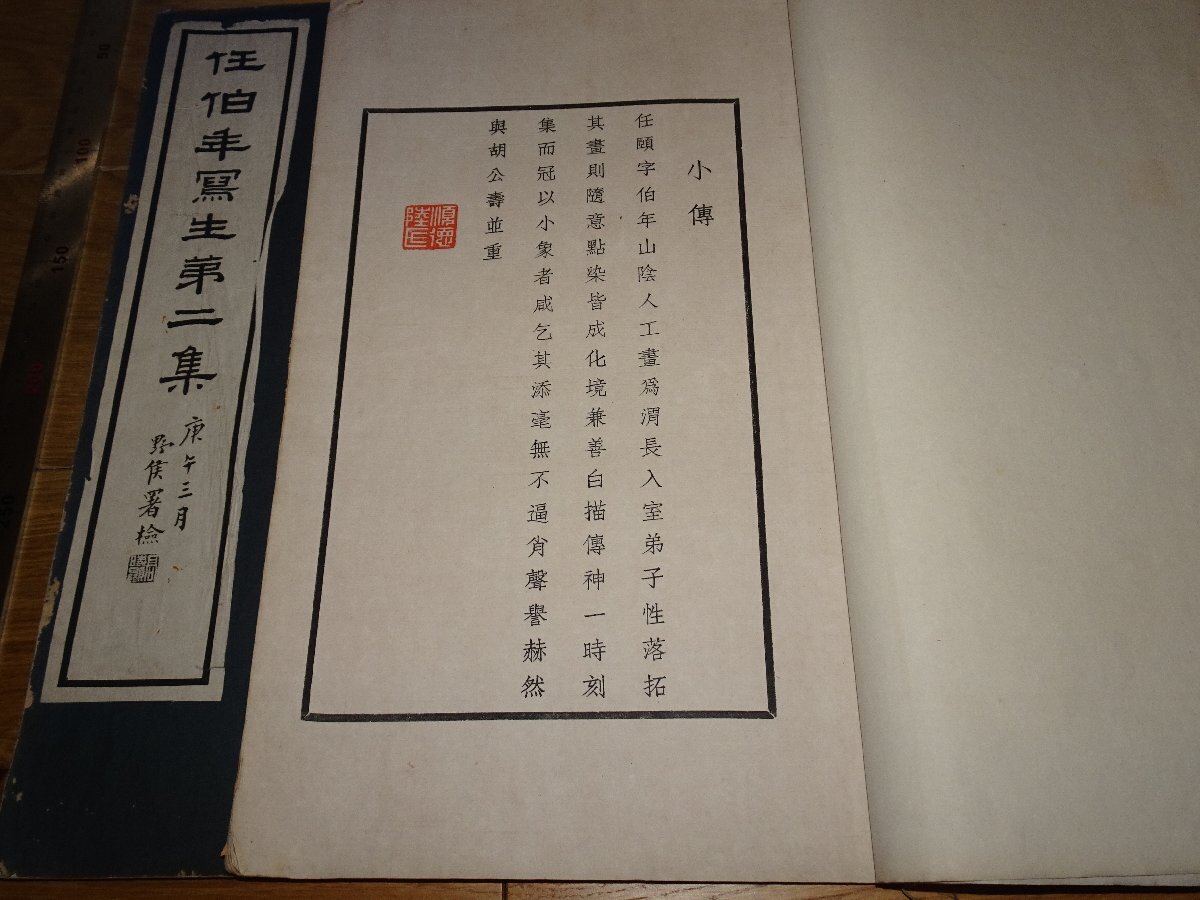 小傳
任頤字伯年山陰人工畫爲渭長入室弟子性落拓
其畫則隨意點染皆成化境兼善白描傳神一時刻
集而冠以小象者咸乞其添毫無不逼肖聲譽赫然
與胡公壽並重
順德
陸氏
任伯年寫生第二集
庚午三月
野侯署檢
50
100
150
200
250